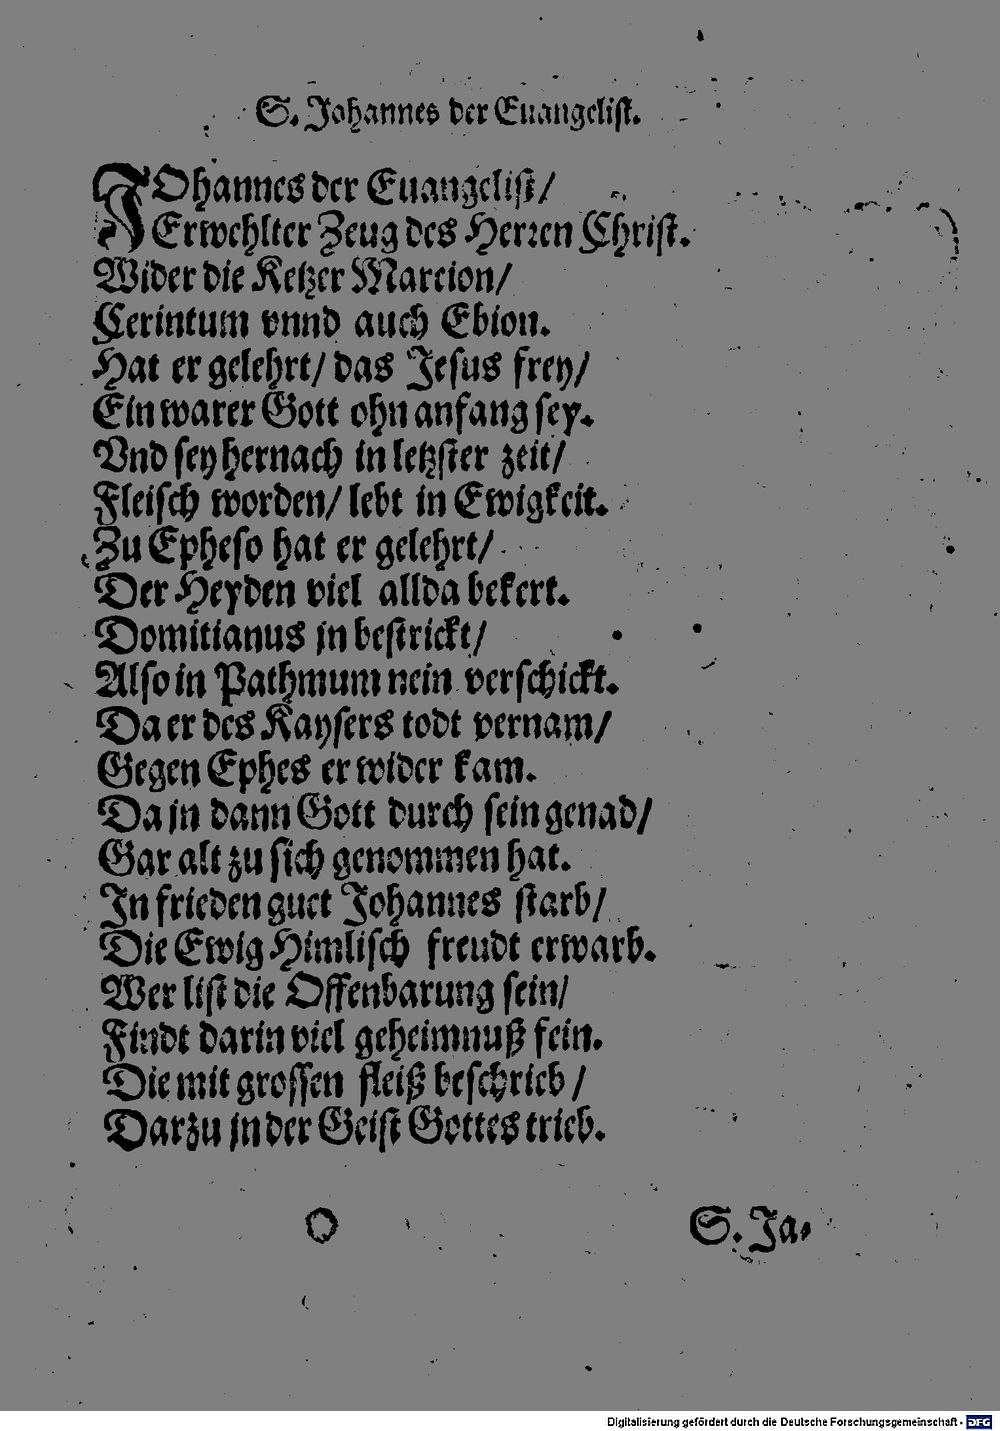 S. Johannes der Euangelist.
JOhannes der Euangelist/
Erwehlter Zeug des Herren Christ.
Wider die Ketzer Marcion/
Cerintum vnnd auch Ebion.
Hat er gelehrt/ das Jesus frey/
Ein warer Gott ohn anfang sey.
Vnd sey hernach in letzster zeit/
Fleisch worden/ lebt in Ewigkeit.
Zu Epheso hat er gelehrt/
Der Heyden viel allda bekert.
Domitianus jn bestrickt/
Also in Pathmum nein verschickt.
Da er des Kaysers todt vernam/
Gegen Ephes er wider kam.
Da jn dann Gott durch sein genad/
Gar alt zu sich genommen hat.
In frieden guet Johannes starb/
Die Ewig Himlisch freudt erwarb.
Wer list die Offenbarung sein/
Findt darin viel geheimnuß fein.
Die mit grossen fleiß beschrieb/
Darzu jn der Geist Gottes trieb.
O S. Ja-
Digitalisierung gefördert durch die Deutsche Forschungsgemeinschaft - DFG